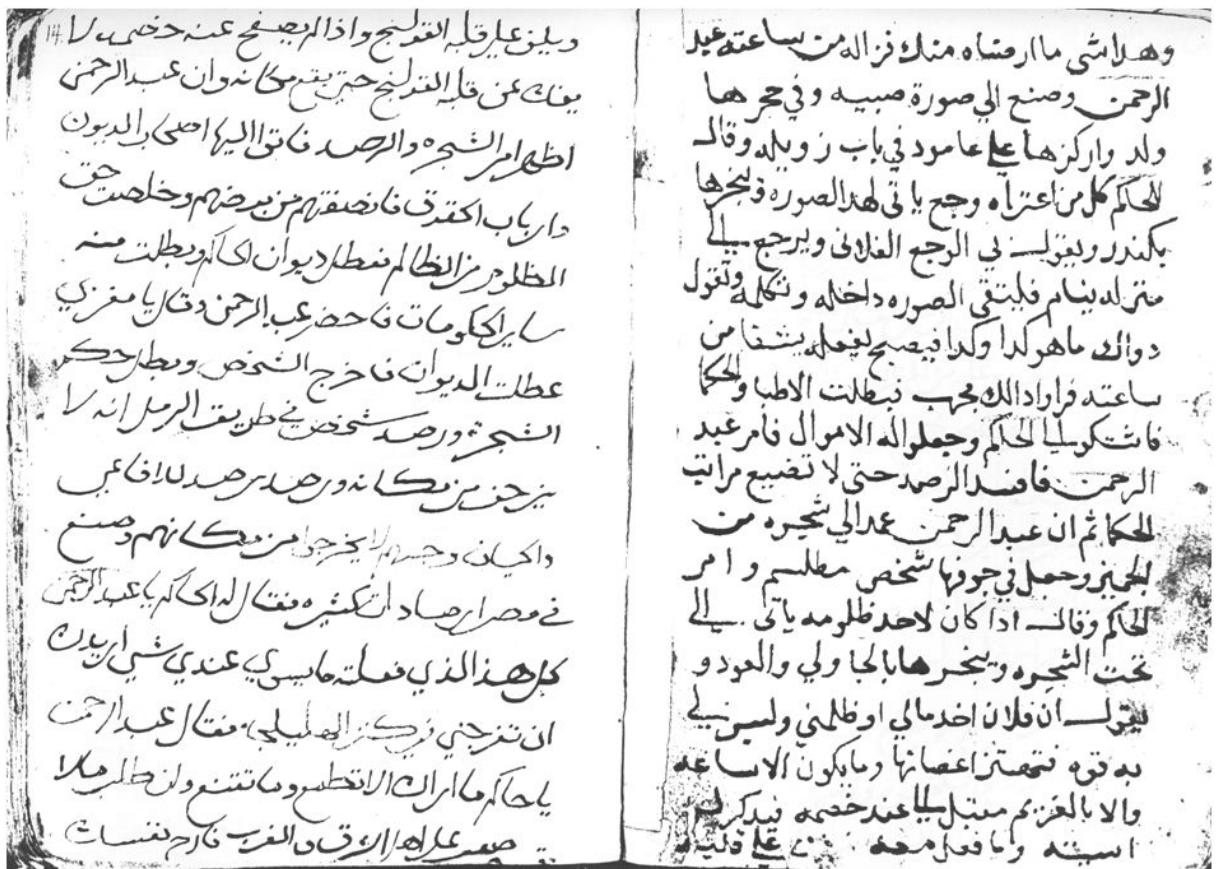 وهداشي ما ارمناه منك فزاله من ساعته عبد
الرحمن وصنع الي صورة صبيه وفي حجرها
ولد واركزها علي عامود في باب زويله وقال
للحاكم كل من اعتراه وجع ياتي لهد الصوره ويبخرها
بكندر ويقول لي الوجع الفلاني ويرجع الي
منزله ينام فليتقي الصوره داخله وتكلمه وتقول
دواك ما هو كدا وكدا فيصبح يفعله يشفا من
ساعته فبطلت الاطبا والحكما
فاشتكو الي الحاكم وجعلوا له الاموال فامر عبد
الرحمن فافسد الرصد حتي لا تضيع مراتب
الحكما ثم ان عبد الرحمن عمد الي شجره من
الجميز وجعل في جوفها شخص مطلسم وامر
الحاكم وقال ادا كان لاحد ظلومه ياتي الي
تحت الشجره ويبخرها بالجاولي والعود و
يقول ان فلان اخد مالي او ظلمني وليس لي
به قوه فتهتز اغصانها وما يكون الا ساعه
والا بالغريم مقبل عند خصمه فيدكر له
وما فعل معه علي قلبه
14
قلبه القولنج واذا لم يصفح عنه خصمه لا
يفك عن قلبه القولنج حتي يقع مكانه وان عبد الرحمن
اظهر امر الشجره والرصد فاتوا اليها اصحاب الديون
وارباب الحقوق فانصفتهم من بعضهم وخلصت حق
المظلوم من الظالم فتعطل ديوان الحاكم وبطلت منه
ساير الحكومات فاحضر عبد الرحمن وقال يا مغربي
عطلت الديوان فاخرج الشخص وبطل حكم
الشجره ورصد شخص في طريق الرمل انه لا
يزحف من مكانه ورصد رصد للافاعي
والحيات وحبسهم لا يخرجوا من مكانهم وصنع
في مصر ارصادات كثيره فقال له الحاكم يا عبد الرحمن
كل هذا الذي فعلته ما يسوي عندي شي اريدك
ان تفرجني في كنز الهليلجي فقال عبد الرحمن
يا حاكم ما اراك الا تطمع وما تقنع ولن
الشرق والغرب